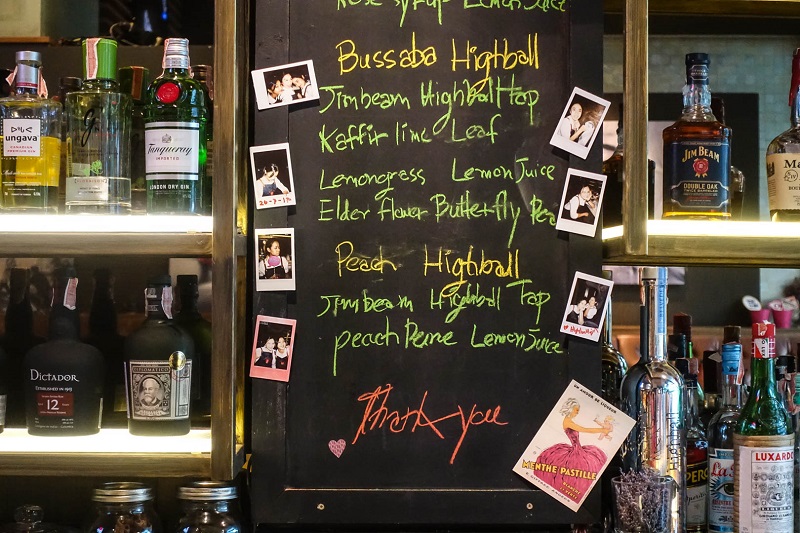 Rose syrup Lemon Juice
Bussaba Highball
Jimbeam Highball Top
Kaffir lime Leaf
Lemongrass Lemon Juice
Elder flower Butterfly Pea
Peach Highball
Jimbeam Highball Top
peach Peine Lemon Juice
Thank you
ungava
CANADIAN
PREMIUM GIN
Tanqueray
IMPORTED
LONDON DRY GIN
DICTADOR
ESTABLISHED IN 1913
12
DIPLOMÁTICO
JIM BEAM
DOUBLE OAK
MENTHE PASTILLE
LUXARDO